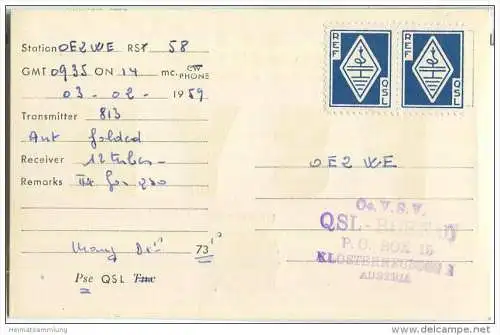 Station OE2WE RST 58
GMT 0935 ON 14 mc. CW PHONE
03-02- 1959
Transmitter 813
Ant folded
Receiver 12 tubes
Remarks for QSO
Many 73's
Pse QSL Tnx
REF QSL
REF QSL
OE2WE
Oe.V.S.V.
QSL-
P.O. BOX
KLOSTERNEUBURG
AUSTRIA
Heimatsammlung
delcampe.net